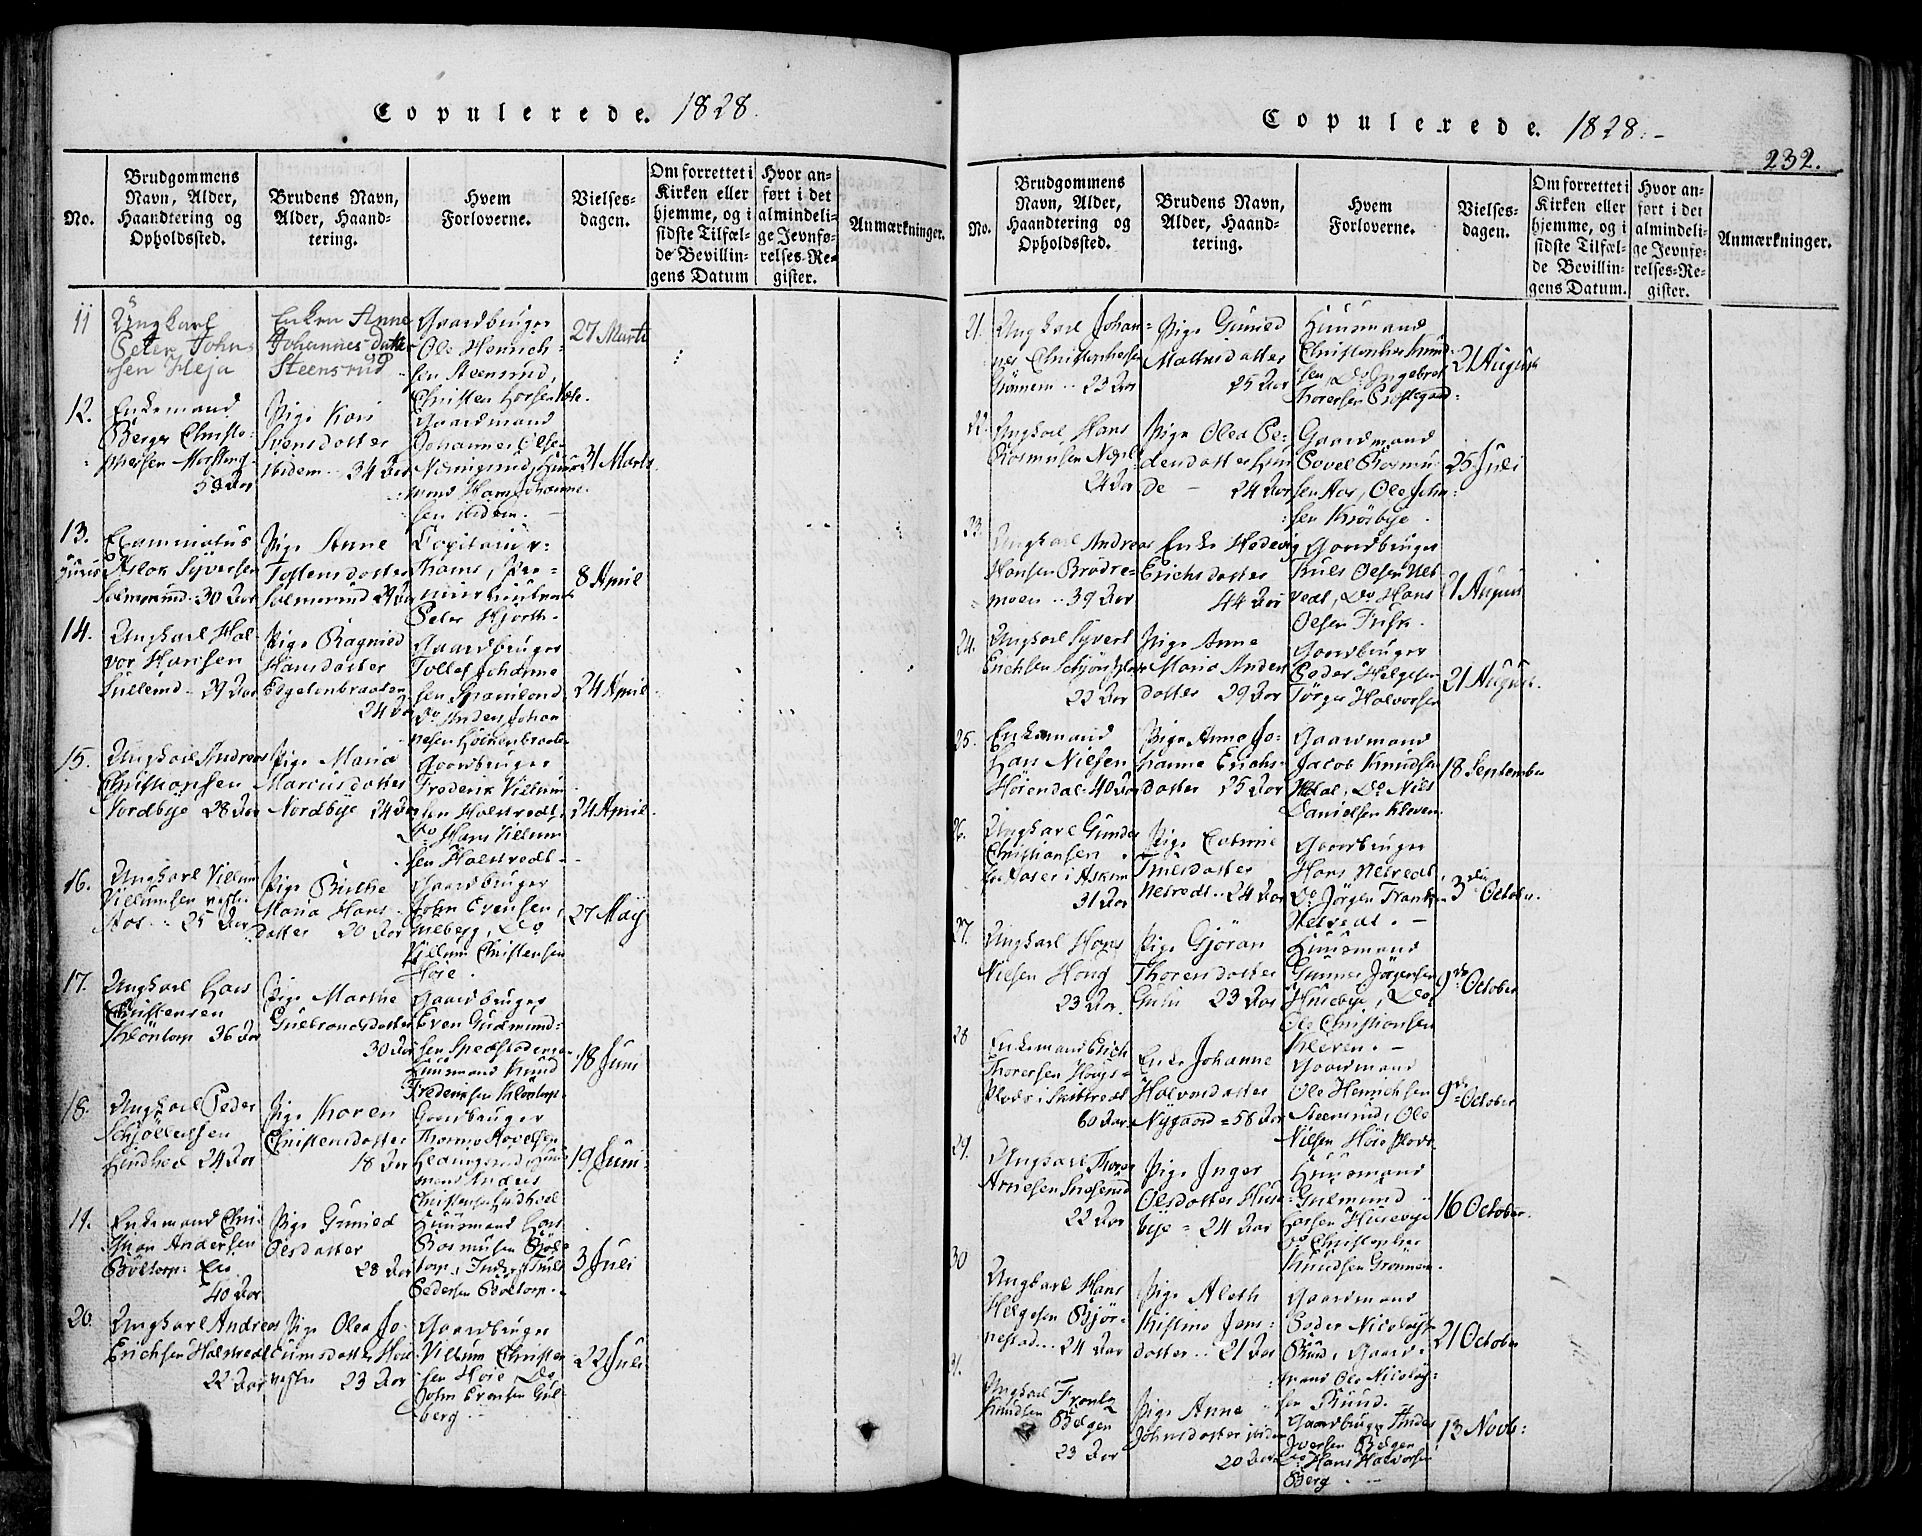 Copulerede. 1828.
No.
Brudgommens
Navn, Alder,
Haandtering og
Opholdssted.
Brudens Navn,
Alder, Haand-
tering.
Hvem
Forloverne.
Vielses-
dagen.
Om forrettet i
Kirken eller
hjemme, og i
sidste Tilfæl-
de Bevillin-
gens Datum
Hvor an-
ført i det
almindeli-
ge Jevnfø-
relses-Re-
gister.
Anmærkninger.
11
Ungkarl
Peter John
sen Heja
Enken Anne
Johannesdatter
Steensrud
Gaardbruger
Ole Henrich-
sen Steensrud,
Christen
27 Marts
12.
Enkemand
Berger Christo-
phersen
53 Aar
Pige Kari
Svensdatter
ibidem 34 Aar
Gaardmand
Johannes Olsen
Huus-
mand Hans Johanne-
sen ibidem.
31 Marts
13.
Examinatus
juris
Aslak Syversen
Solmsrud 30 Aar
Pige Anne
Tostensdatter
Solmsrud 29 Aar
Capitain
Thams, Pre-
mier
Peter Hjorth.
8 April
14.
Ungkarl Hal-
vor Hansen
29 Aar
Pige Ragnild
Hansdatter
24 Aar
Gaardbruger
Tollef Johanne-
sen
Do Anders Johan-
nesen
24 April
15.
Ungkarl Andreas
Christiansen
Nordbye 28 Aar
Pige Maria
Marcusdatter
Nordbye 24 Aar
Gaardbruger
Frederik Villum-
sen Halstvedt,
Do Hans Villum-
sen Halstvedt
24 April
16.
Ungkarl Villum
Villumsen vestre
Aas 25 Aar
Pige Birthe
Maria Hans-
datter 20 Aar
Gaardbruger
John Evensen
Gulberg, Do
Villum Christensen
Høie.
27 May
17.
Ungkarl Lars
Christensen
Kløntorp 36 Aar
Pige Marthe
Gulbrandsdatter
30 Aar
Gaardbruger
Even Gudmund-
sen
Huusmand Knud
Frederiksen Kløntorp
18 Juni
18.
Ungkarl Peder
Schjøllersen
Lindhol 24 Aar
Pige Karen
Christensdatter
18 Aar
Gaardbruger
Huus-
mand Anders
Christensen Lindhoel
19 Juni
19.
Enkemand Chri-
stian Andersen
Bøltorp
40 Aar
Pige Gunild
Olsdatter
28 Aar
Huusmand Lars
Rasmusen Bøl-
torp,
Pedersen Bøltorp.
3 Juli
20.
Ungkarl Andreas
Erichsen Halstvedt
22 Aar
Pige Olea Jo-
vestre 23 Aar
Gaardbruger
Villum Christen-
sen Høie, Do
John Evensen Gul-
berg
22 Juli
Copulerede. 1828.
232.
No.
Brudgommens
Navn, Alder,
Haandtering og
Opholdssted.
Brudens Navn,
Alder, Haand-
tering.
Hvem
Forloverne.
Vielses-
dagen.
Om forrettet i
Kirken eller
hjemme, og i
sidste Tilfæl-
de Bevillin-
gens Datum.
Hvor an-
ført i det
almindeli-
ge Jevnfø-
relses-Re-
gister.
Anmærkninger.
21.
Ungkarl Johan-
nes Christophersen
23 Aar
Pige Gunild
Mattisdatter
25 Aar
Huusmand
Christopher Knud-
sen, Do Ingebret
Thoresen Præstegaard
21 August
22.
Ungkarl Hans
Rasmusen
24 Aar
Pige Olea Pe-
dersdatter
24 Aar
Gaardmand
Povel Rasmu-
sen Aas, Ole John-
sen
25 Juli
23.
Ungkarl Andreas
Hansen Brødre-
moen 39 Aar
Enke Hedevig
Erichsdatter
44 Aar
Gaardbruger
Truls Olsen
Do Hans
Olsen Frisk.
21 August
24.
Ungkarl Syvert
Erichsen
22 Aar
Pige Anne
Maria Anders-
datter 29 Aar
Gaardbruger
Peder Helgesen
Jørgen Halvorsen
21 August
25.
Enkemand
Hans Nielsen
40 Aar
Pige Anne Jo-
hanne Erichs-
datter 25 Aar
Gaardmand
Jacob Knudsen
Do Niels
Danielsen Kleven
18 September
26.
Ungkarl Gunder
Christiansen
i Askim
31 Aar
Pige Catrine
Trulsdatter
24 Aar
Gaardbruger
Hans
Do Jørgen
3die October.
27.
Ungkarl Hans
Nielsen Haug
23 Aar
Pige Gjøran
Thoresdatter
23 Aar
Huusmand
Gunner Jørgensen
Huusebye, Do
Ole Christiansen
Kleven.
9de October
28
Enkemand Erich
Thoresen
Plads i Skibtvedt
60 Aar
Enke Johanne
Halvorsdatter
Nygaard 58 Aar
Gaardmand
Ole Henrichsen
Steensrud, Ole
Nielsen Høie Plads
9de October
29.
Ungkarl Thore
Arnesen
22 Aar
Pige Inger
Olsdatter Huse-
bye 24 Aar
Huusmand
Gulmund
Larsen Husebye
Do Christopher
Knudsen
16 October.
30
Ungkarl Hans
Helgesen Bjør-
nestad 24 Aar
Pige Aleth
Kistine Jans-
datter 21 Aar
Gaardmand
Peder Nicolays
Rund, Gaard-
mand Ole Nicolay-
sen Rund.
21 October
31.
Ungkarl Frants
Knudsen
Belgen
23 Aar
Pige Anne
Johnsdatter ibidem
20 Aar
Gaardbruger Anders
Iversen Belgen
Do Hans Halvorsen
Berg
13 Novb: